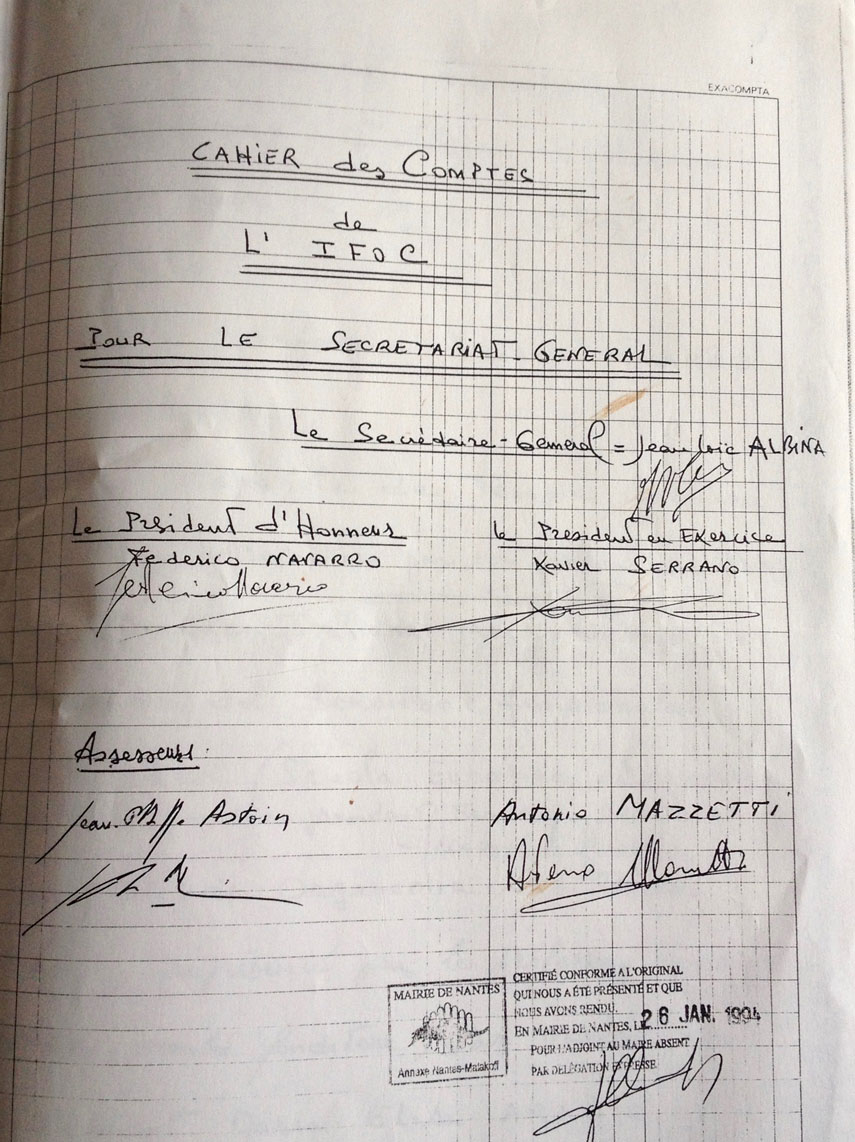 EXACOMPTA
CAHIER des COMPTES
de
L' IFOC
POUR LE SECRETARIAT-GENERAL
Le Secrétaire-General = Jean-Loïc ALBINA
Le Président d'Honneur
Federico NAVARRO
le President en Exercice
Xavier SERRANO
Assesseurs:
Jean. Ph. Astoin
Antonio MAZZETTI
MAIRIE DE NANTES
Annexe Nantes-Malakoff
CERTIFIÉ CONFORME A L'ORIGINAL
QUI NOUS A ÉTÉ PRÉSENTÉ ET QUE
NOUS AVONS RENDU.
EN MAIRIE DE NANTES, LE 26 JAN. 1994
POUR L'ADJOINT AU MAIRE ABSENT
PAR DELÉGATION EXPRESSE